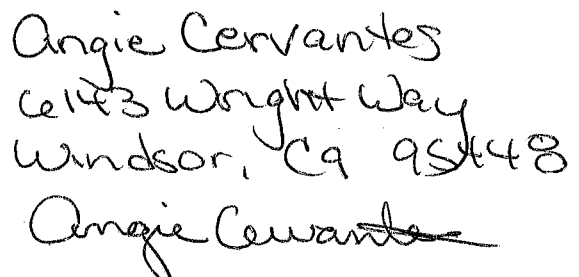 Angie Cervantes
6143 Wright Way
Windsor, Ca 95448
Angie Cervantes